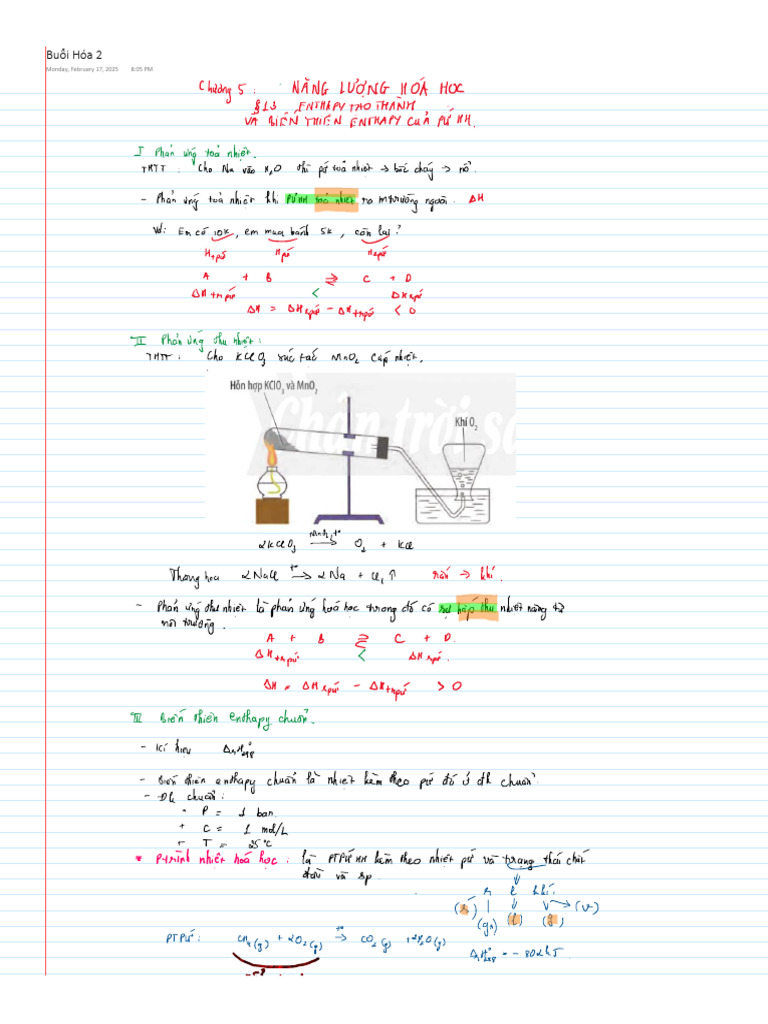 Buổi Hóa 2
Monday, February 17, 2025 8:05 PM
Chương 5: NĂNG LƯỢNG HOÁ HỌC
§13 ENTHAPY TẠO THÀNH
VÀ BIẾN THIÊN ENTHAPY CỦA PỨ HH.
I Phản ứng toả nhiệt.
THTT: Cho Na vào H₂O thì pứ toả nhiệt → bốc cháy → nổ.
- Phản ứng toả nhiệt khi PỨHH toả nhiệt ra mtrường ngoài. ΔH
Vd: Em có 10k, em mua bánh 5k, còn lại?
A + B ⇌ C + D
ΔH tpứ < ΔH spứ
ΔH = ΔH spứ - ΔH tpứ < 0
II Phản ứng thu nhiệt:
THTT: Cho KClO₃ xúc tác MnO₂ cấp nhiệt.
Hỗn hợp KClO₃ và MnO₂
Chân trời sá
Khí O₂
2KClO₃ MnO₂, t° → O₂ + KCl
Thăng hoa 2NaCl t° → 2Na + Cl₂↑ rắn → khí.
- Phản ứng thu nhiệt là phản ứng hoá học trong đó có sự hấp thu nhiệt năng từ
môi trường.
A + B ⇌ C + D.
ΔH tpứ < ΔH spứ.
ΔH = ΔH spứ - ΔH tpứ > 0
III Biến thiên enthapy chuẩn.
- Kí hiệu ΔrH°298
- Biến thiên enthapy chuẩn là nhiệt kèm theo pứ đó ở đk chuẩn.
- Đk chuẩn:
- P = 1 bar.
+ C = 1 mol/L
+ T = 25°C
* P.trình nhiệt hoá học: là PTPỨHH kèm theo nhiệt pứ và trạng thái chất
đầu và sp.
r l khí.
(s) (l) (g) (v)
PTPỨ: CH₄(g) + 2O₂(g) t° → CO₂(g) + 2H₂O(g) ΔrH°298 = -802kJ